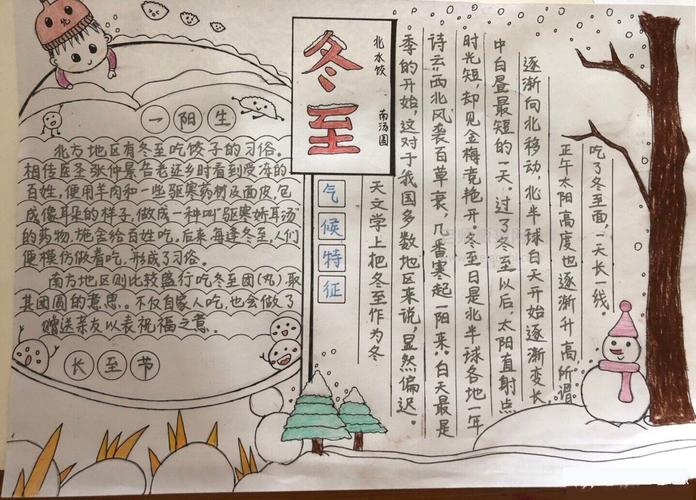 冬至
北水饺
南汤圆
一阳生
北方地区有冬至吃饺子的习俗。
相传医圣张仲景告老还乡时看到受冻的
百姓,便用羊肉和一些驱寒药材及面皮,包
成像耳朵的样子,做成一种叫"驱寒娇耳汤"
的药物,施舍给百姓吃。后来每逢冬至,人们
便模仿做着吃,形成了习俗。
南方地区则比较盛行吃冬至团(丸)取
其团圆的意思。不仅自家人吃,也会做了
赠送亲友以表祝福之意。
长至节
气候特征
天文学上把冬至作为冬
季的开始,这对于我国多数地区来说,显然偏迟。
诗云:西北风袭百草衰,几番寒起一阳来。白天最是
时光短,却见金梅竞艳开。冬至日是北半球各地一年
中白昼最短的一天。过了冬至以后,太阳直射点
逐渐向北移动,北半球白天开始逐渐变长
正午太阳高度也逐渐升高,所谓
吃了冬至面,一天长一线